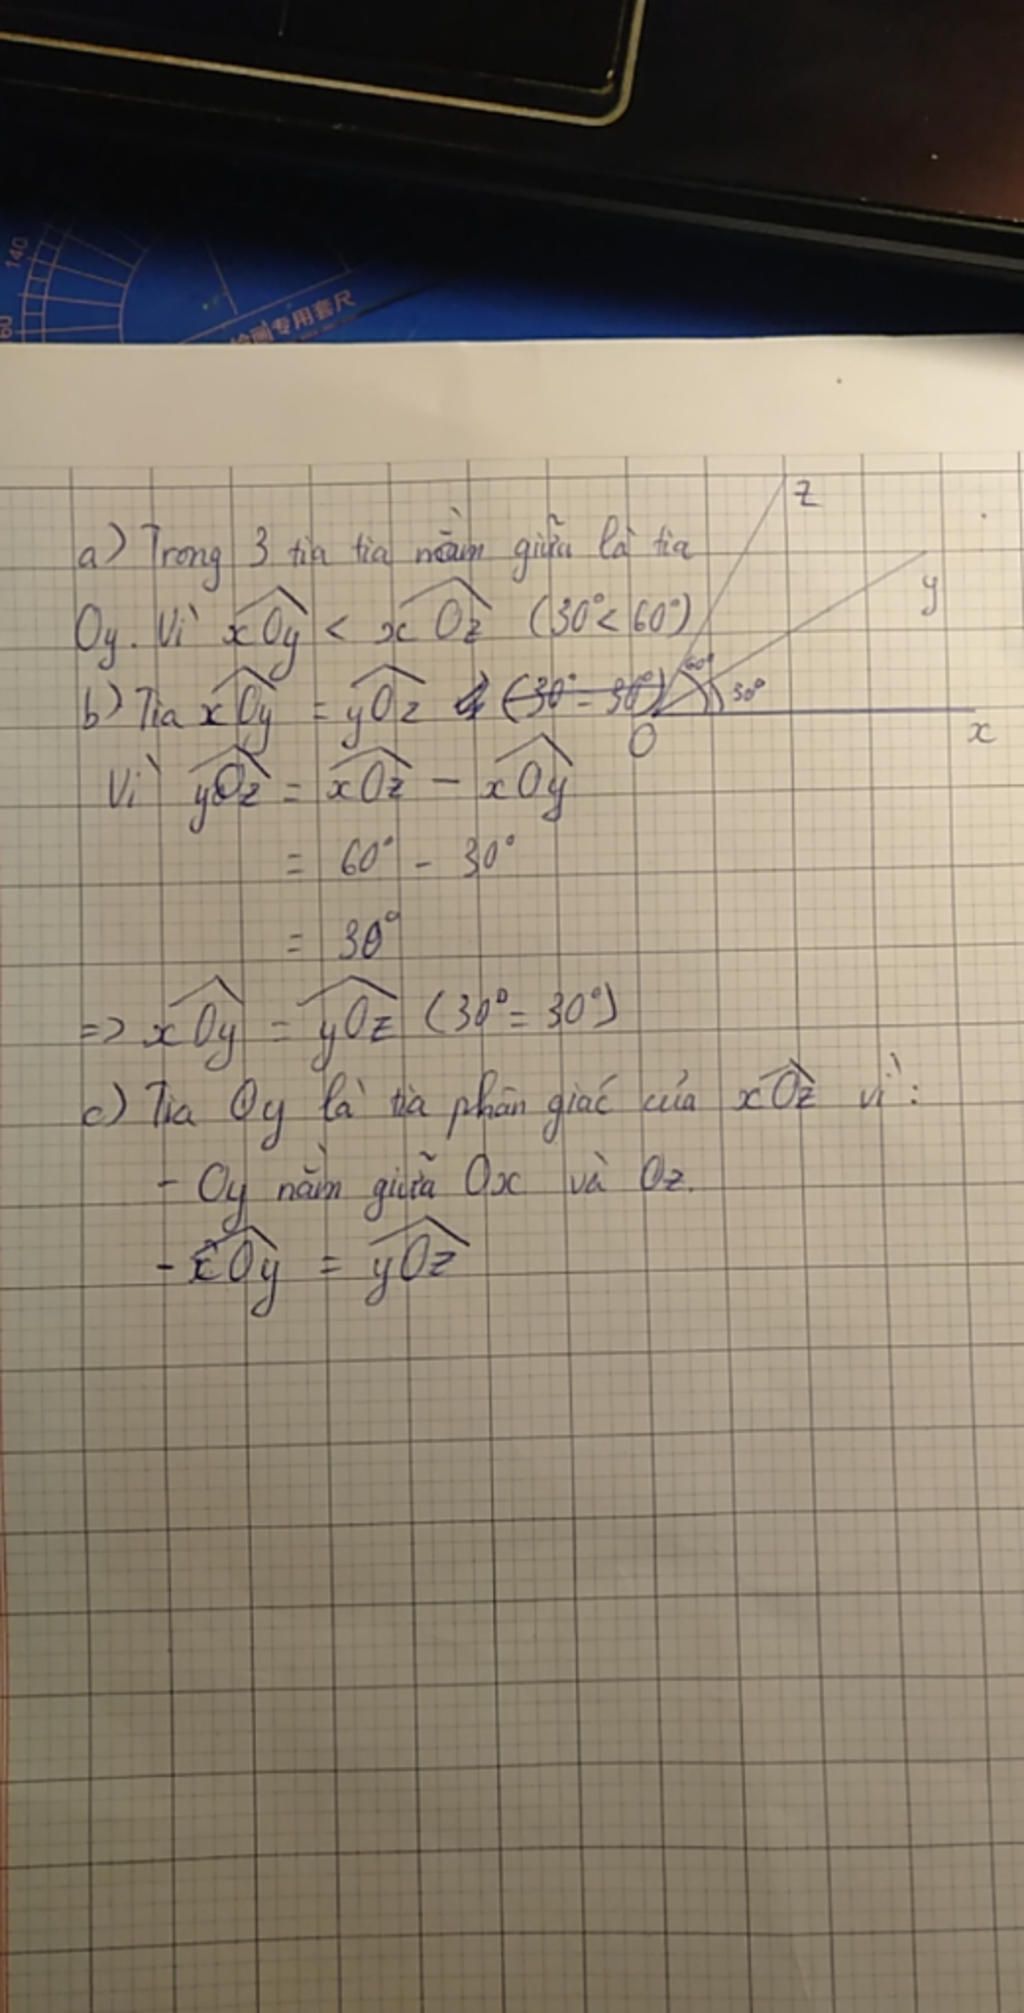 140
60
绘画专用套尺
z
a) Trong 3 tia tia nằm giữa là tia
y
Oy. Vì xOy < xOz (30° < 60°)
60°
30°
b) Tia xOy = yOz (30° = 30°)
O
x
Vì yOz = xOz - xOy
= 60° - 30°
= 30°
=> xOy = yOz (30° = 30°)
c) Tia Oy là tia phân giác của xOz vì:
- Oy nằm giữa Ox và Oz.
- xOy = yOz